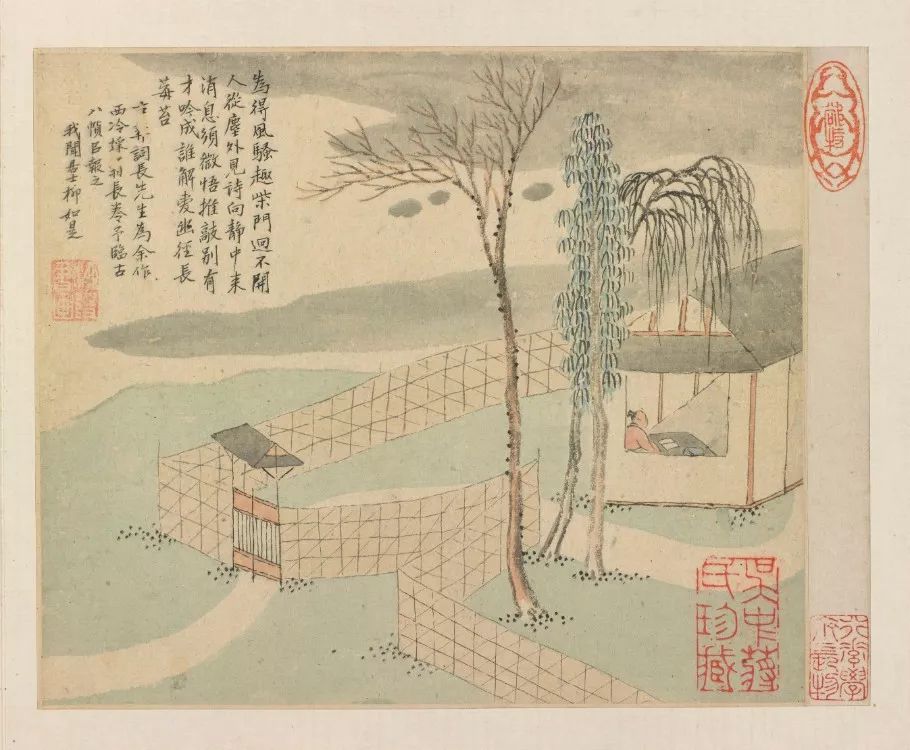 為得風騷趣柴門迥不開
人從塵外見詩向静中来
消息須微悟推敲别有
才吟成誰解愛幽徑長
莓苔
詞長先生為余作
西泠採長卷予臨古
八幀㠯報之
我聞居士柳如是
吳中蔣
氏珍藏